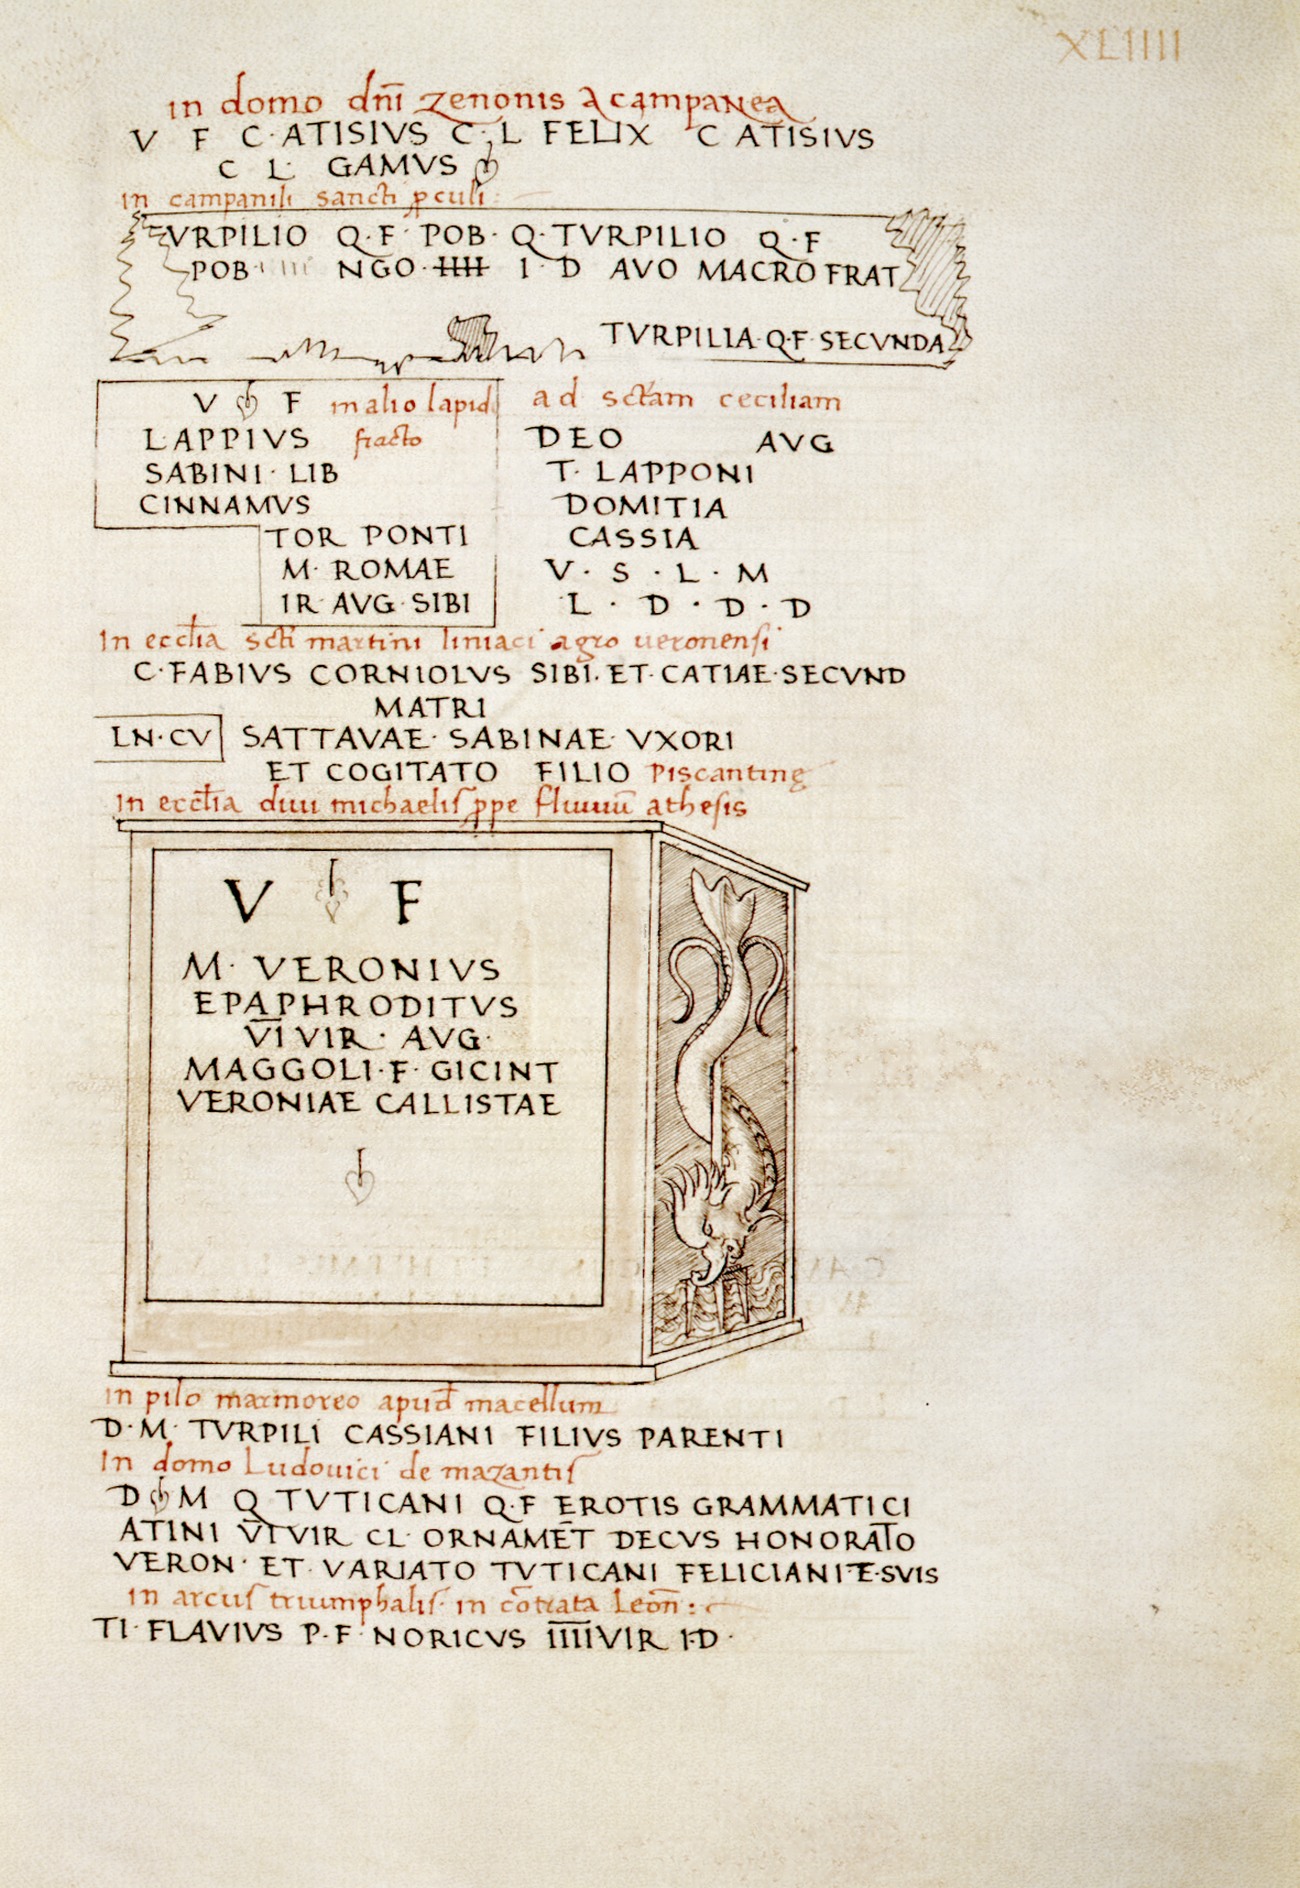 XLIIII
in domo dñi zenonis a campanea
V F C·ATISIVS C·L FELIX C ATISIVS
C L GAMVS
in campanili sancti ꝓculi:
TVRPILIO Q·F· POB· Q·TVRPILIO Q·F
POB· IIII NGO·IIII I·D AVO MACRO FRAT
TVRPILIA·Q·F·SECVNDA
V F in alio lapid
L·APPIVS fracto
SABINI· LIB
CINNAMVS
TOR PONTI
M· ROMAE
IR·AVG·SIBI
ad sctam ceciliam
DEO AVG
T· LAPPONI
DOMITIA
CASSIA
V· S ·L· M
L · D · D · D
In ecclia scti martini liniaci agro veronensi
C·FABIVS CORNIOLVS SIBI·ET·CATIAE·SECVND
MATRI
LN·CV SATTAVAE· SABINAE· VXORI
ET COGITATO FILIO Piscantinę
In ecclia diui michaelis ꝓpe fluuiū athesis
V F
M· VERONIVS
EPAPHRODITVS
V̅I̅ VIR· AVG·
MAGGOLI·F· GICINT
VERONIAE CALLISTAE
in pilo marmoreo apud macellum
D·M· TVRPILI CASSIANI FILIVS PARENTI
In domo Ludouici de mazantis
D M Q TVTICANI Q·F EROTIS GRAMMATICI
ATINI V̅I̅ VIR CL· ORNAMĒT DECVS HONORATO
VERON· ET· VARIATO TVTICANI FELICIANI·E·SVIS
in arcus triumphalis· in cōtrata Leon̄:
TI·FLAVIVS P·F·NORICVS I̅I̅I̅I̅VIR I·D·